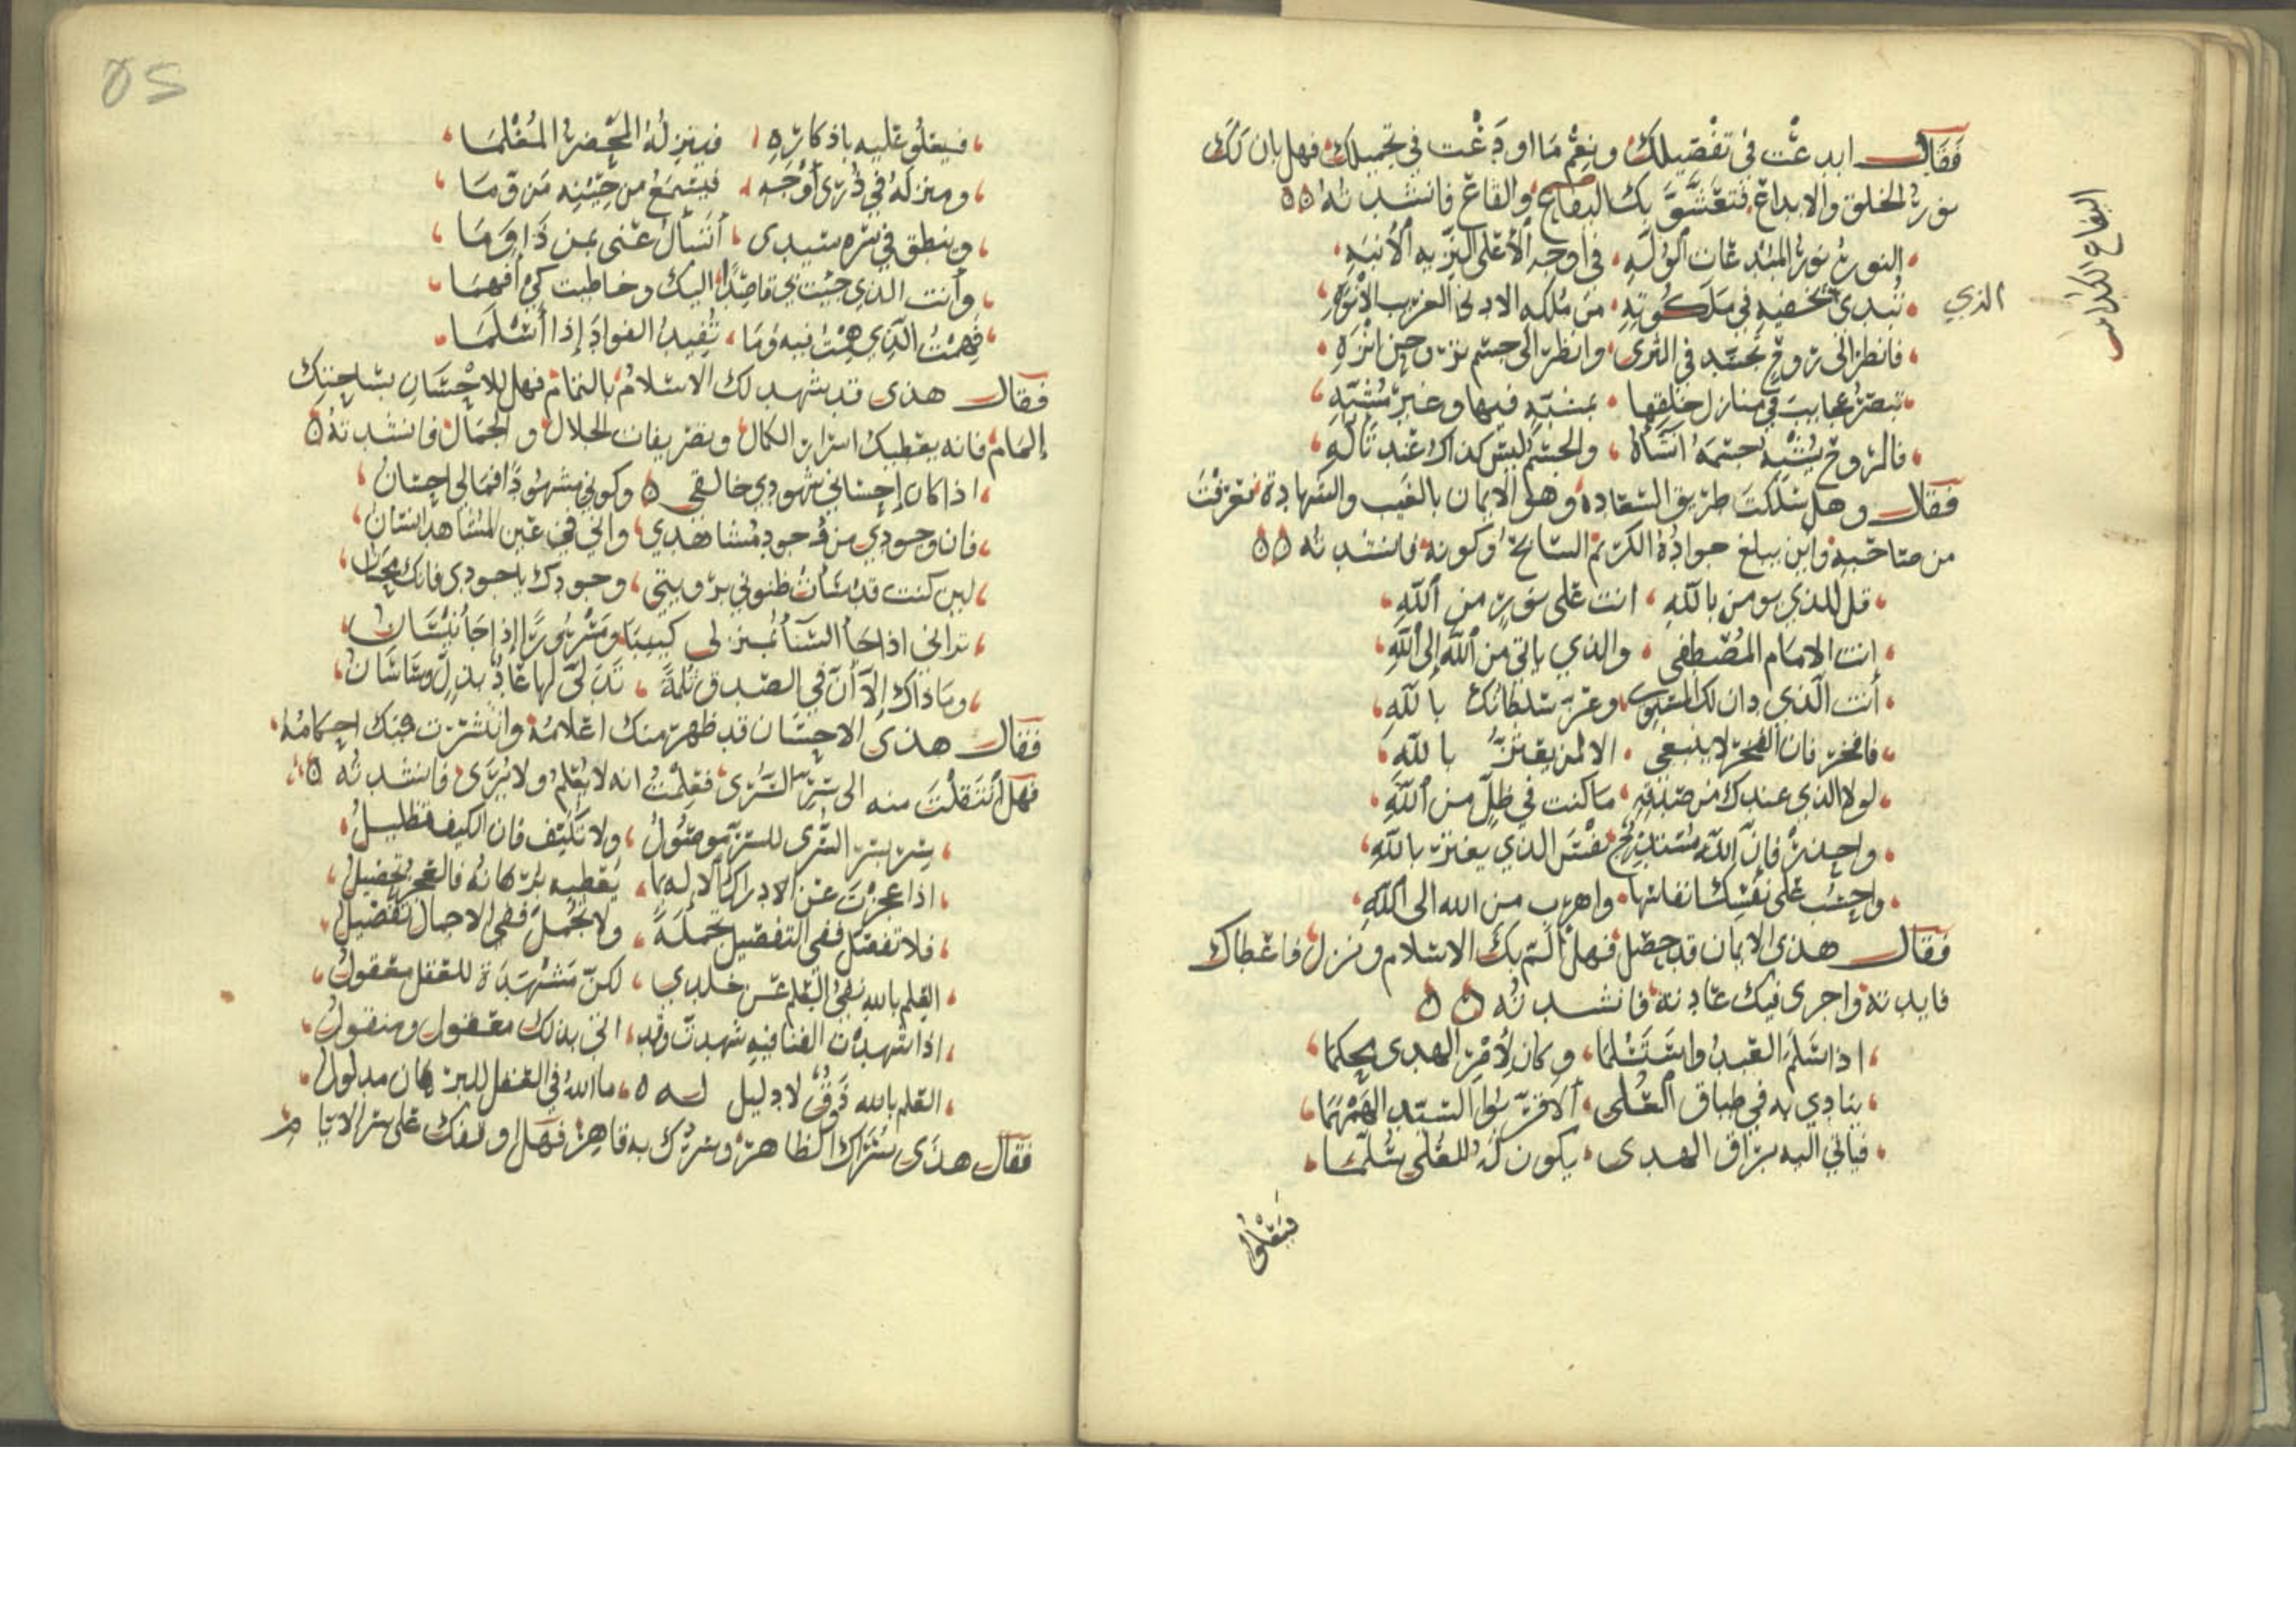 فقال ابدعت في تفصيلك ونعم ما اودعت في تجميلك فهل بان لك
نور الخلق والابداع فتعشق بك البقاع والقاع فانشدته
النور نور المبدعات الوله في اوجه الاعلى النزيه الانبه
تبدى تخضيه في ملكوته من ملكه الادنى الغريب الانوه
الذي
البقاع
فانظر الى روح تجسد في الثرى وانظر الى جسم بروحين انزه
تبصر عجايب في منازل خلقها بمنبه فيها وغير منبه
فالروح يشبه جسمه انشاه والجسم ليس كذاك عند تاله
فقال وهل سلكت طريق السعادة وهو الايمان بالغيب والشهادة فعرفت
من صاحبه واين يبلغ جواده الكريم السابح وكونه فانشدته
قل للذي يومن بالله انت على نور من الله
انت الامام المصطفى والذي ياتي من الله الى الله
انت الذي دان لك المستوى وعز سلطانك بالله
فافخر فان الفخر لا ينبغي الا لمن يعتز بالله
لولا الذي عندك من صدقه ما كنت في ظل من الله
واحذر فان الله مستدرج نفس الذي يغتر بالله
واحسب على نفسك انفاسها واهرب من الله الى الله
فقال هذى الايمان قد حصل فهل الم بك الاسلام ونزل فاعطاك
فايدته واجرى فيك عادته فانشدته
اذا سلم العبد واستسلما وكان لامر الهدى محكما
ينادي به في طباق العلى الا قربوا السيد الهمهما
فياتي اليه براق الهدى يكون له للعلى سلما
فيعلو
52
فيعلو عليه باذكاره فينزله المحضر المعلما
ومنزله في ذرى اوجه فيسمع من حينه من وما
وينطق في سره سيدى اتسال عني بمن ذا وما
وانت الذي جيتني قاصدا اليك وخاطبت كي افهما
فهمت الذي همت فيه وما تفيد الفواد اذا اسلما
فقال هذى قد شهد لك الاسلام بالتمام فهل للاحسان بساحتك
المام فانه يعطيك اسرار الكمال وتصريفات الجلال والجمال فانشدته
اذا كان احساني شهودي خالقي وكوني مشهودا فما لي احسان
فان وجودي من وجود مشاهدي واني في عين المشاهد انسان
لين كنت قد ساءت ظنوني برويتي وجودك يا جودى فانك محسان
تراني اذا جا الشتا بمنزلي كييبا ومسرورا اذا جا نيسان
وما ذاك الا ان في الصدق ثلمة تدلى لها عاد بذل وساسان
فقال هذى الاحسان قد ظهر منك اعلامه وانتشرت فيك احكامه
فهل انتقلت منه الى سر السرى فعلمت انه لا يعلم ولا يرى فانشدته
سر بسر السرى للسر موصول ولا تكيف فان الكيف تضليل
اذا عجزت عن الادراك الاله بما يعطيه برهانه فالعجز تحصيل
فلا تفصل ففي التفصيل تجملة ولا تجمل ففي الاجمال تفصيل
العلم بالله نفي العلم عن خلدي لكن مشهده للعقل معقول
اذا شهدت الفنا فيه شهدت وقد اتى بذلك معقول ومنقول
العلم بالله ذوق لا دليل له ما الله في العقل للبرهان مدلول
فقال هذى سراك الظاهر وسرك به قاهر فهل اوقفك على سر الايام